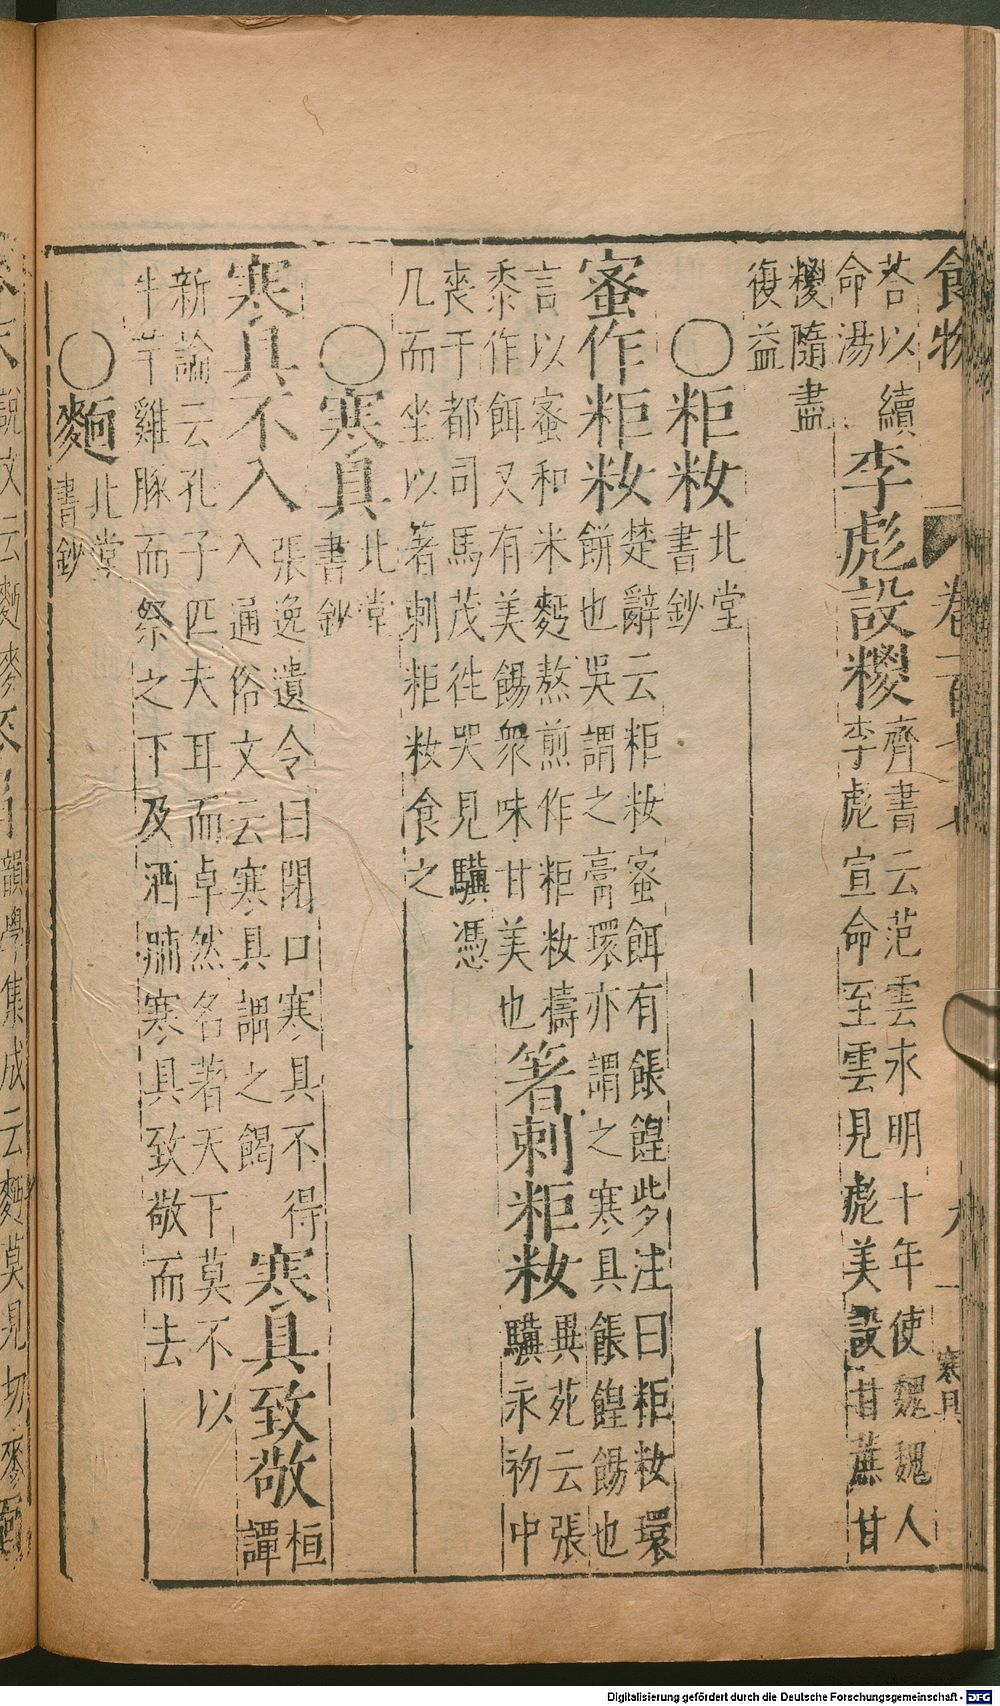 食物 卷一百 九 寒具
荅以續
命湯
李彪設糉
齊書云范雲永明十年使魏魏人
李彪宣命至雲見彪美設甘蔗甘
糉隨盡
復益
○粔籹
北堂
書鈔
蜜作粔籹
楚辭云粔籹蜜餌有餦餭些注曰粔籹環
餅也吳謂之膏環亦謂之寒具餦餭餳也
言以蜜和米麪熬煎作粔籹擣
黍作餌又有美餳衆味甘美也
箸刺粔籹
異苑云張
驥永初中
喪于都司馬茂徃哭見驥憑
几而坐以箸刺粔籹食之
○寒具
北堂
書鈔
寒具不入
張逸遺令曰閉口寒具不得
入通俗文云寒具謂之餲
寒具致敬
桓
譚
新論云孔子匹夫耳而卓然名著天下莫不以
牛羊雞豚而祭之下及酒脯寒具致敬而去
○麵
北堂
書鈔
說文云麪麥
韻學集成云麪莫見切麥
Digitalisierung gefördert durch die Deutsche Forschungsgemeinschaft - DFG